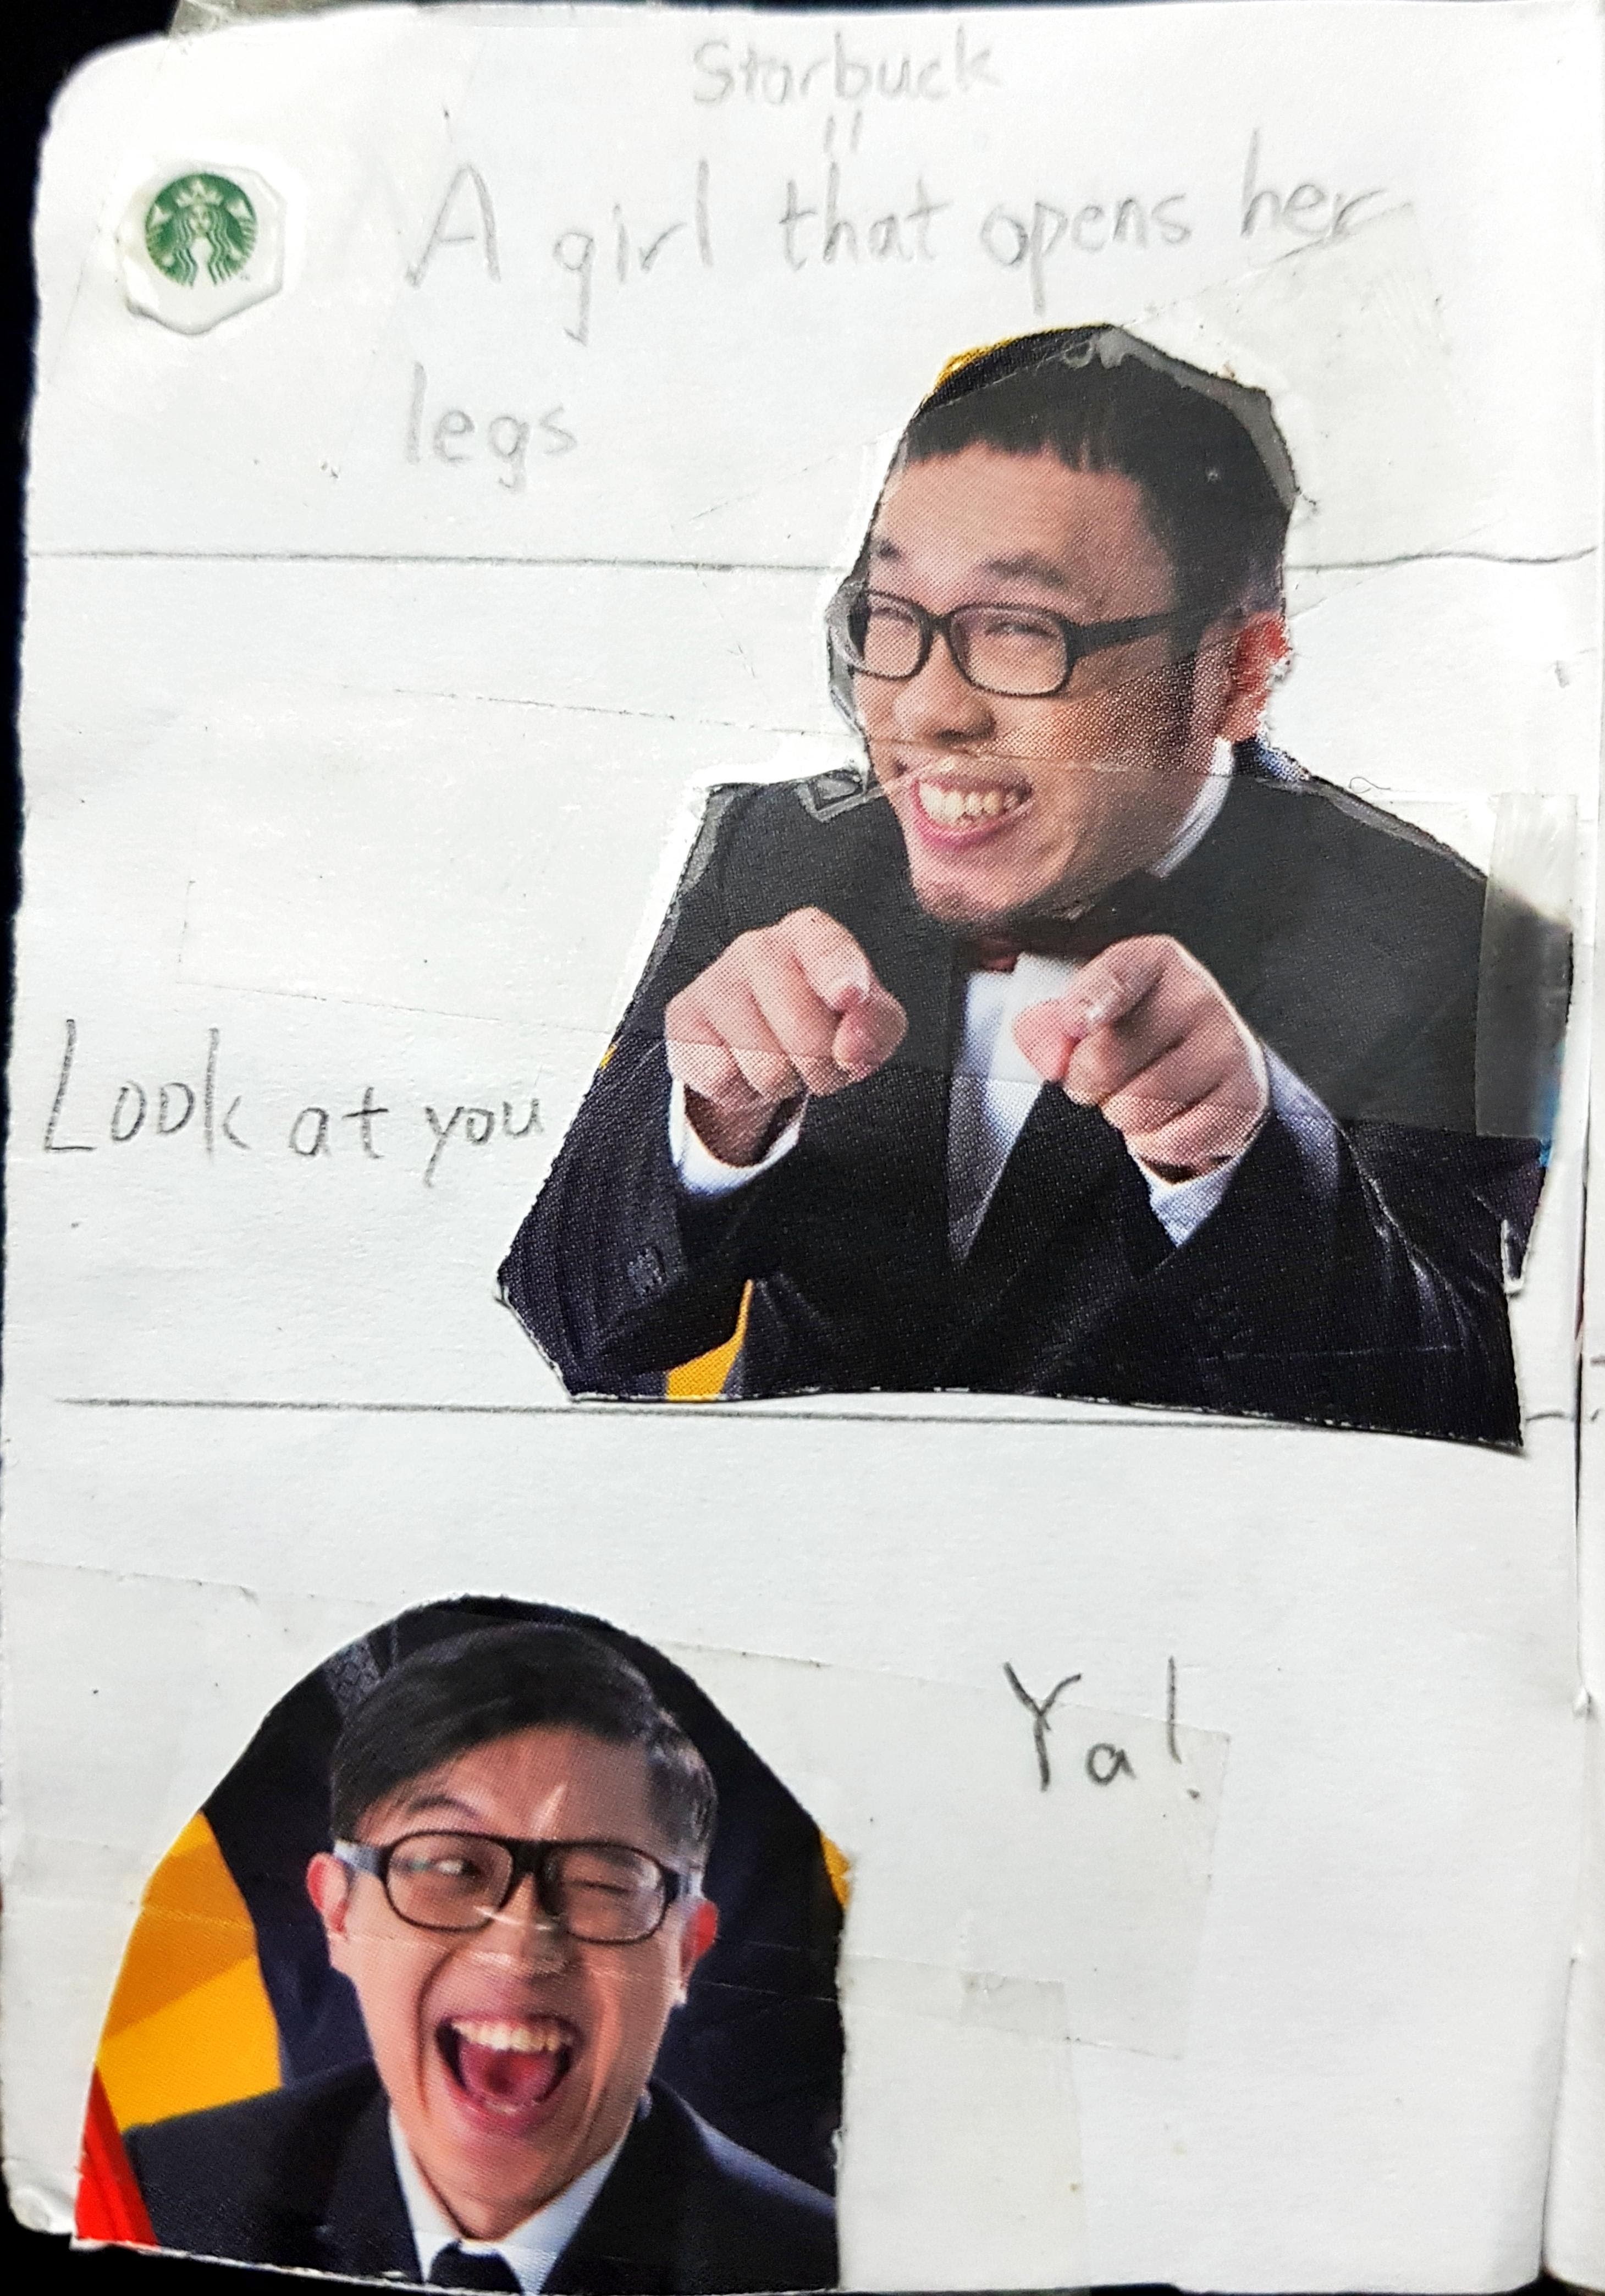 Starbuck
"
A girl that opens her
legs
Look at you
Ya!